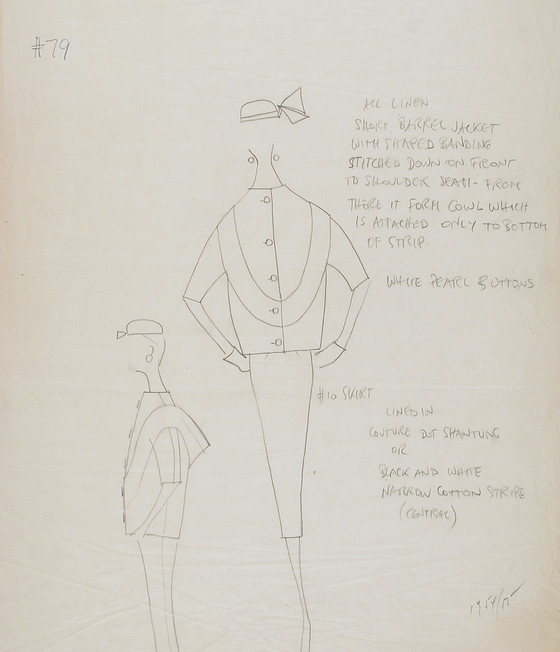 #79
ALL LINEN
SHORT BARREL JACKET
WITH SHAPED BANDING
STITCHED DOWN ON FRONT
TO SHOULDER SEAM - FROM
THERE IT FORM COWL WHICH
IS ATTACHED ONLY TO BOTTOM
OF STRIP.
WHITE PEARL BUTTONS
#10 SKIRT
LINED IN
COUTURE DOT SHANTUNG
OR
BLACK AND WHITE
NARROW COTTON STRIPE
(CENTRAL)